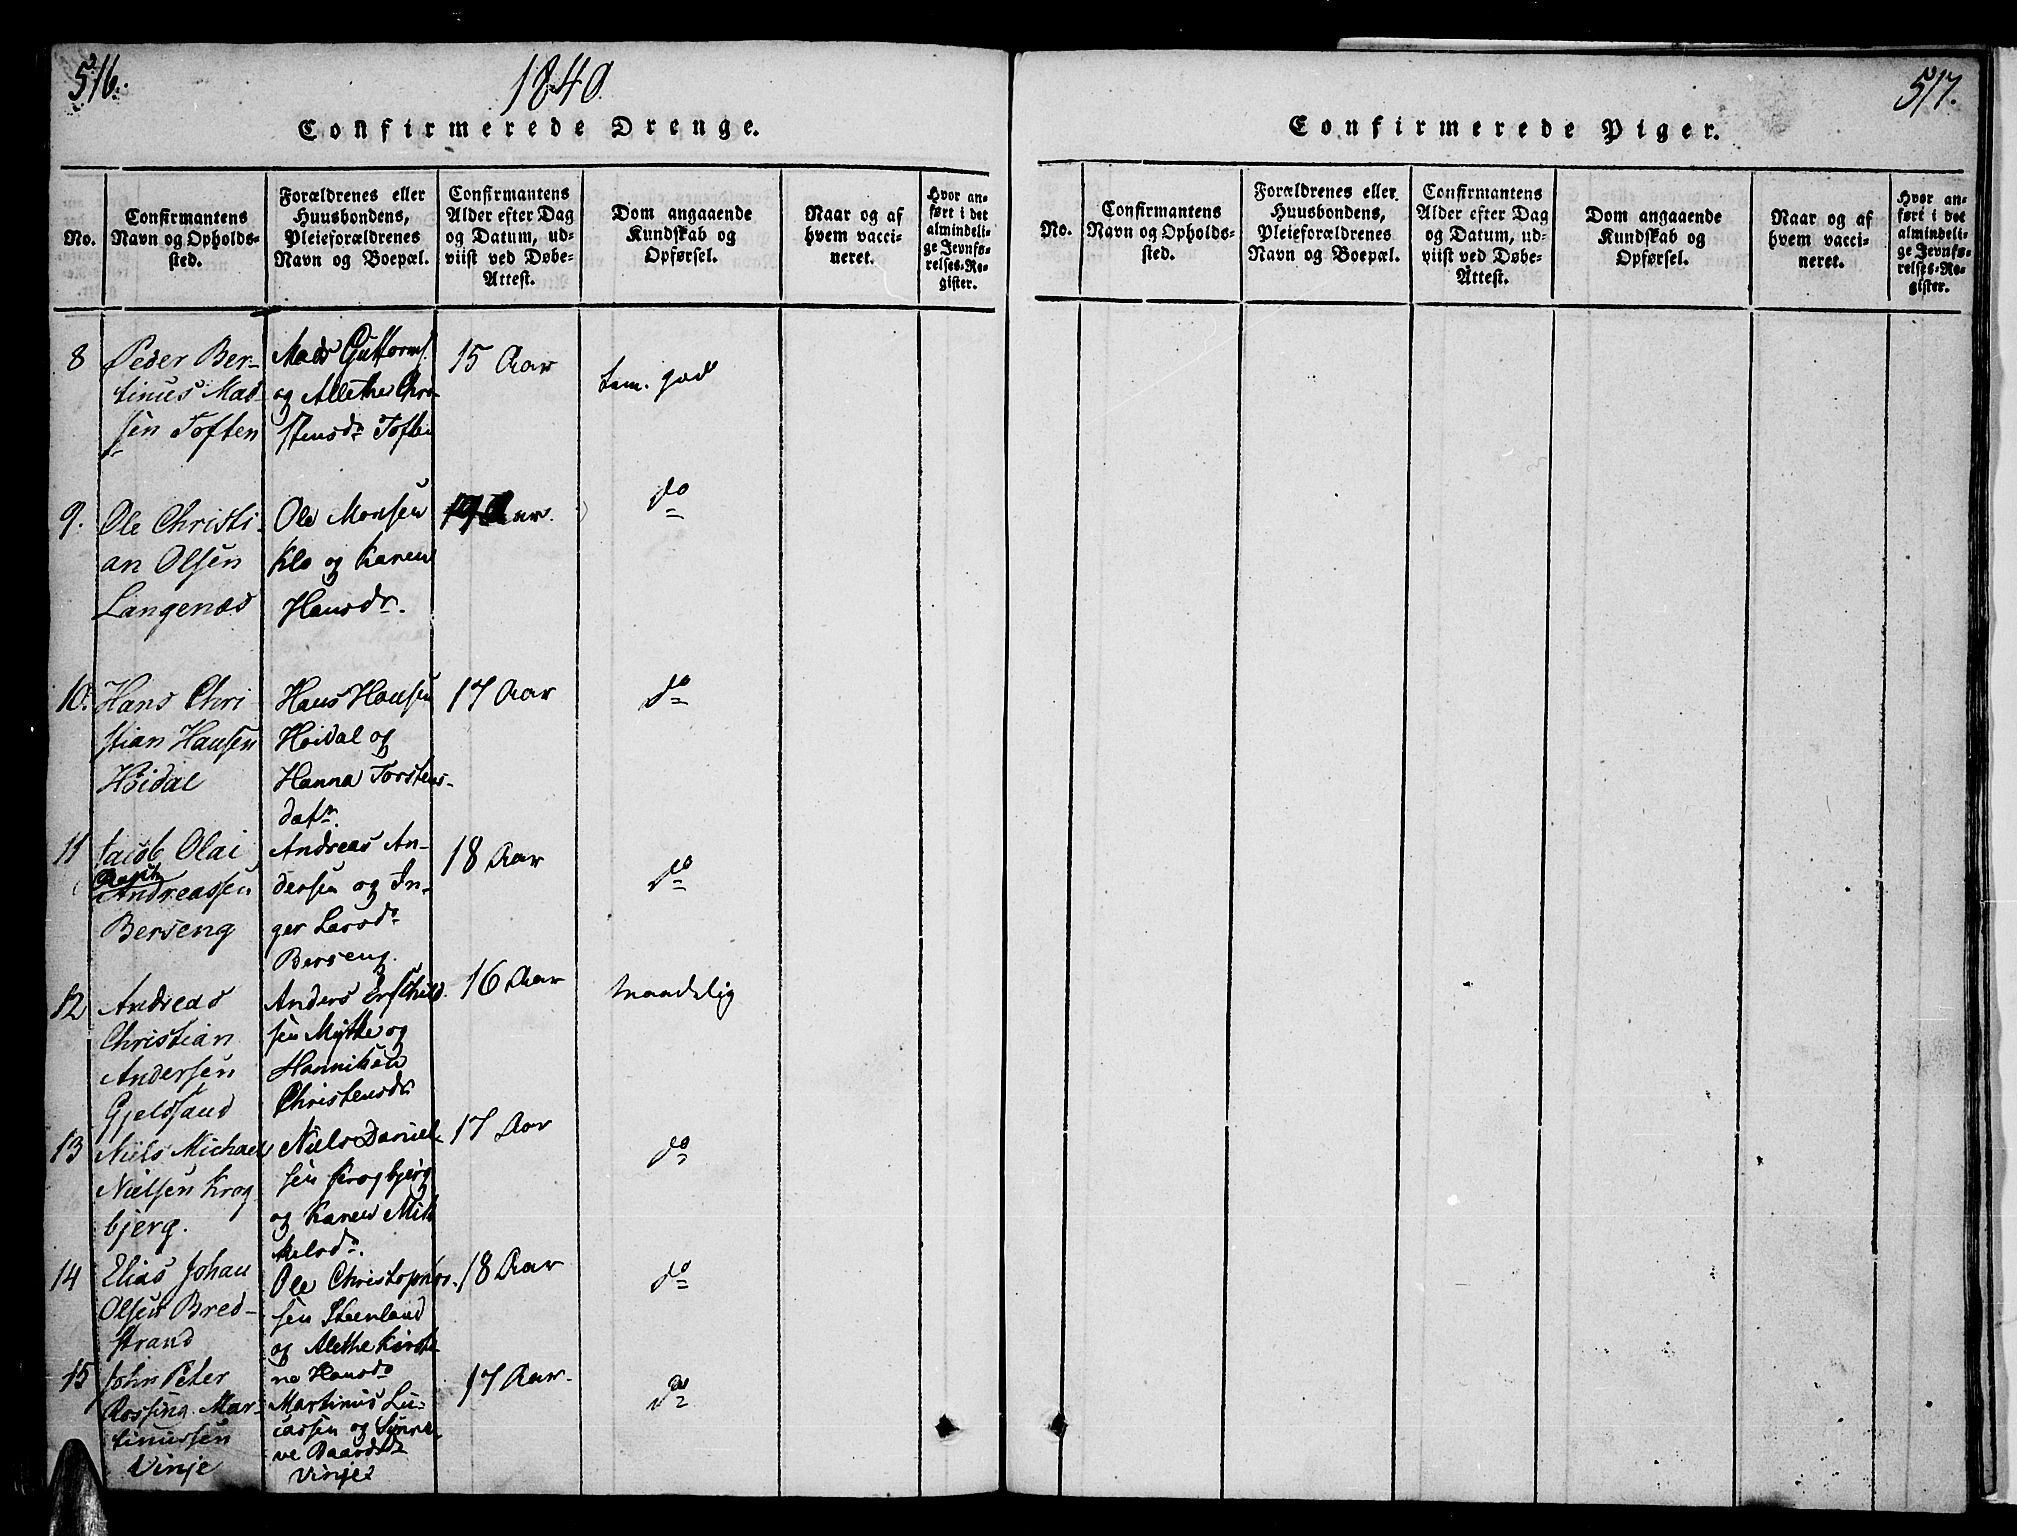 516.
1840.
Confirmerede Drenge.
No.
Confirmantens
Navn og Opholds-
sted.
Forældrenes eller
Huusbondens,
Pleieforældrenes
Navn og Boepæl.
Confirmantens
Alder efter Dag
og Datum, ud-
viist ved Døbe-
Attest.
Dom angaaende
Kundskab og
Opførsel.
Naar og af
hvem vacci-
neret.
Hvor an-
ført i det
almindeli-
ge Jevnfø-
relses-Re-
gister.
8
Peder Ber-
tinus Mad-
sen Toften
Mads Guttorms.
og Allethe Chri-
stensdr Toften
15 Aar
tem. god
9.
Ole Christi-
an Olsen
Langenæs
Ole Monsen
Klo og Karen
Hansdr.
Aar.
do
10.
Hans Chri-
stian Hansen
Høidal
Hans Hansen
Høidal og
Hanna Torstens-
datr.
17 Aar
do
11
Jacob Olai
Andreassen
Berseng
Andreas An-
dersen og In-
ger Larsdr
Berseng.
18 Aar
do
12
Andreas
Christian
Andersen
Gjeldsand
Anders
sen Mykle og
Hanniken
Christensdr
16 Aar
maadelig
13
Niels Michael
Nielsen Krog
bjerg.
Niels Daniel-
sen Krogbjerg
og Karen Mik
kelsdr.
17 Aar
do
14
Elias Johan
Olsen Bred-
strand
Ole Christophs.
sen Steenland
og Alethe Kirsti-
ne Hansdr
18 Aar
do
15
John Peter
Rossing Mar-
tinussen
Vinje
Martinus Lu-
cassen og Synne-
ve Baardsdr
Vinje
17 Aar.
do
517.
Confirmerede Piger.
No.
Confirmantens
Navn og Opholds-
sted.
Forældrenes eller
Huusbondens,
Pleieforældrenes
Navn og Boepæl.
Confirmantens
Alder efter Dag
og Datum, ud-
viist ved Døbe-
Attest.
Dom angaaende
Kundskab og
Opførsel.
Naar og af
hvem vacci-
neret.
Hvor an-
ført i det
almindeli-
ge Jevnfø-
relses-Re-
gister.